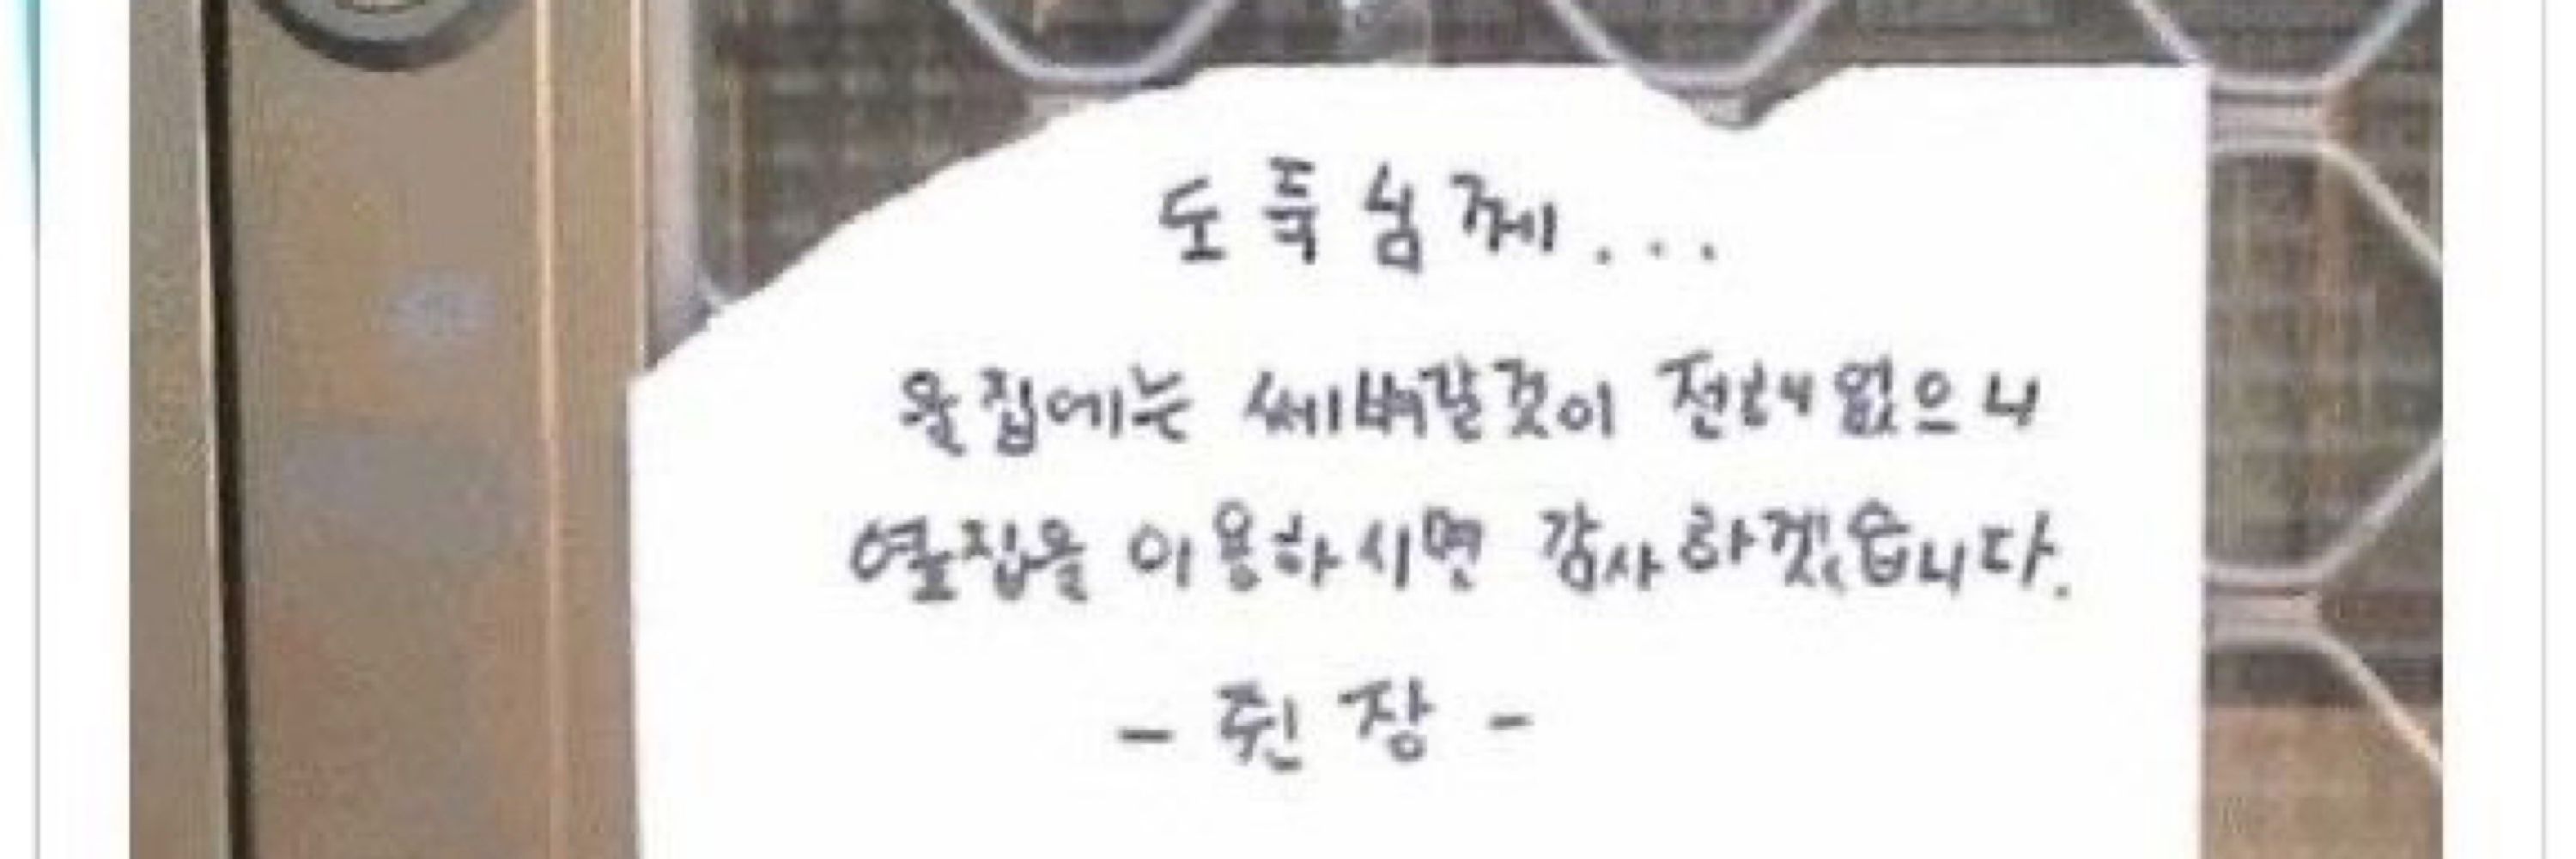 도둑님께...
울집에는 쎄벼갈것이 전혀 없으니
옆집을 이용하시면 감사하겠습니다.
- 쥔장 -